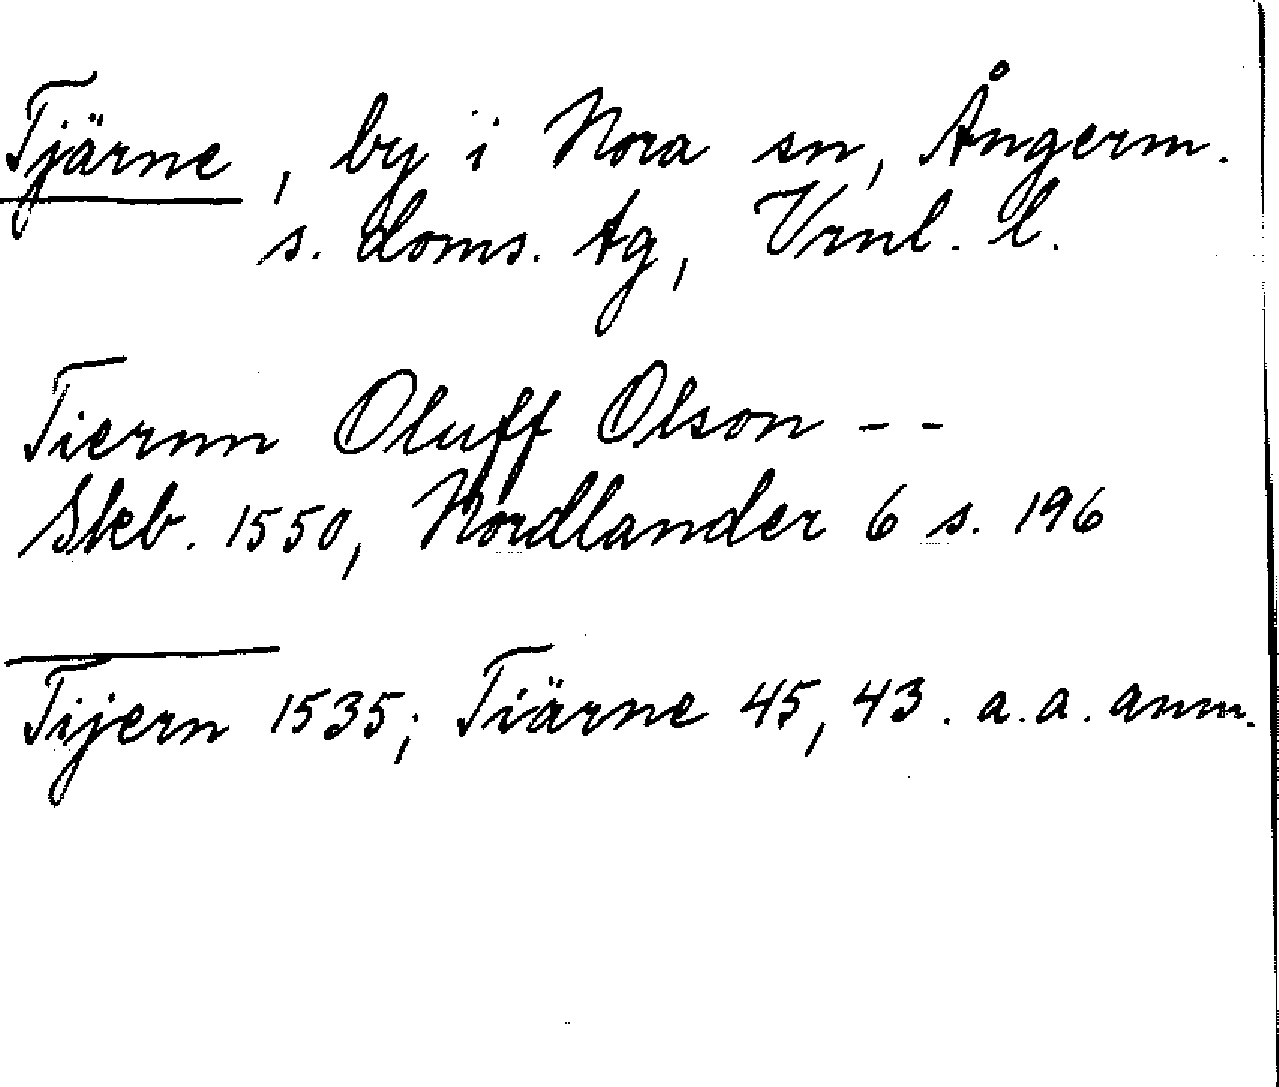 Tjärne, by i Nora sn, Ångerm.
s. doms. tg, Vrnl. l.
Tiernn Oluff Olson - -
Skb. 1550, Nordlander 6 s. 196
Tijern 1535; Tiärne 45, 43. a.a. anm.